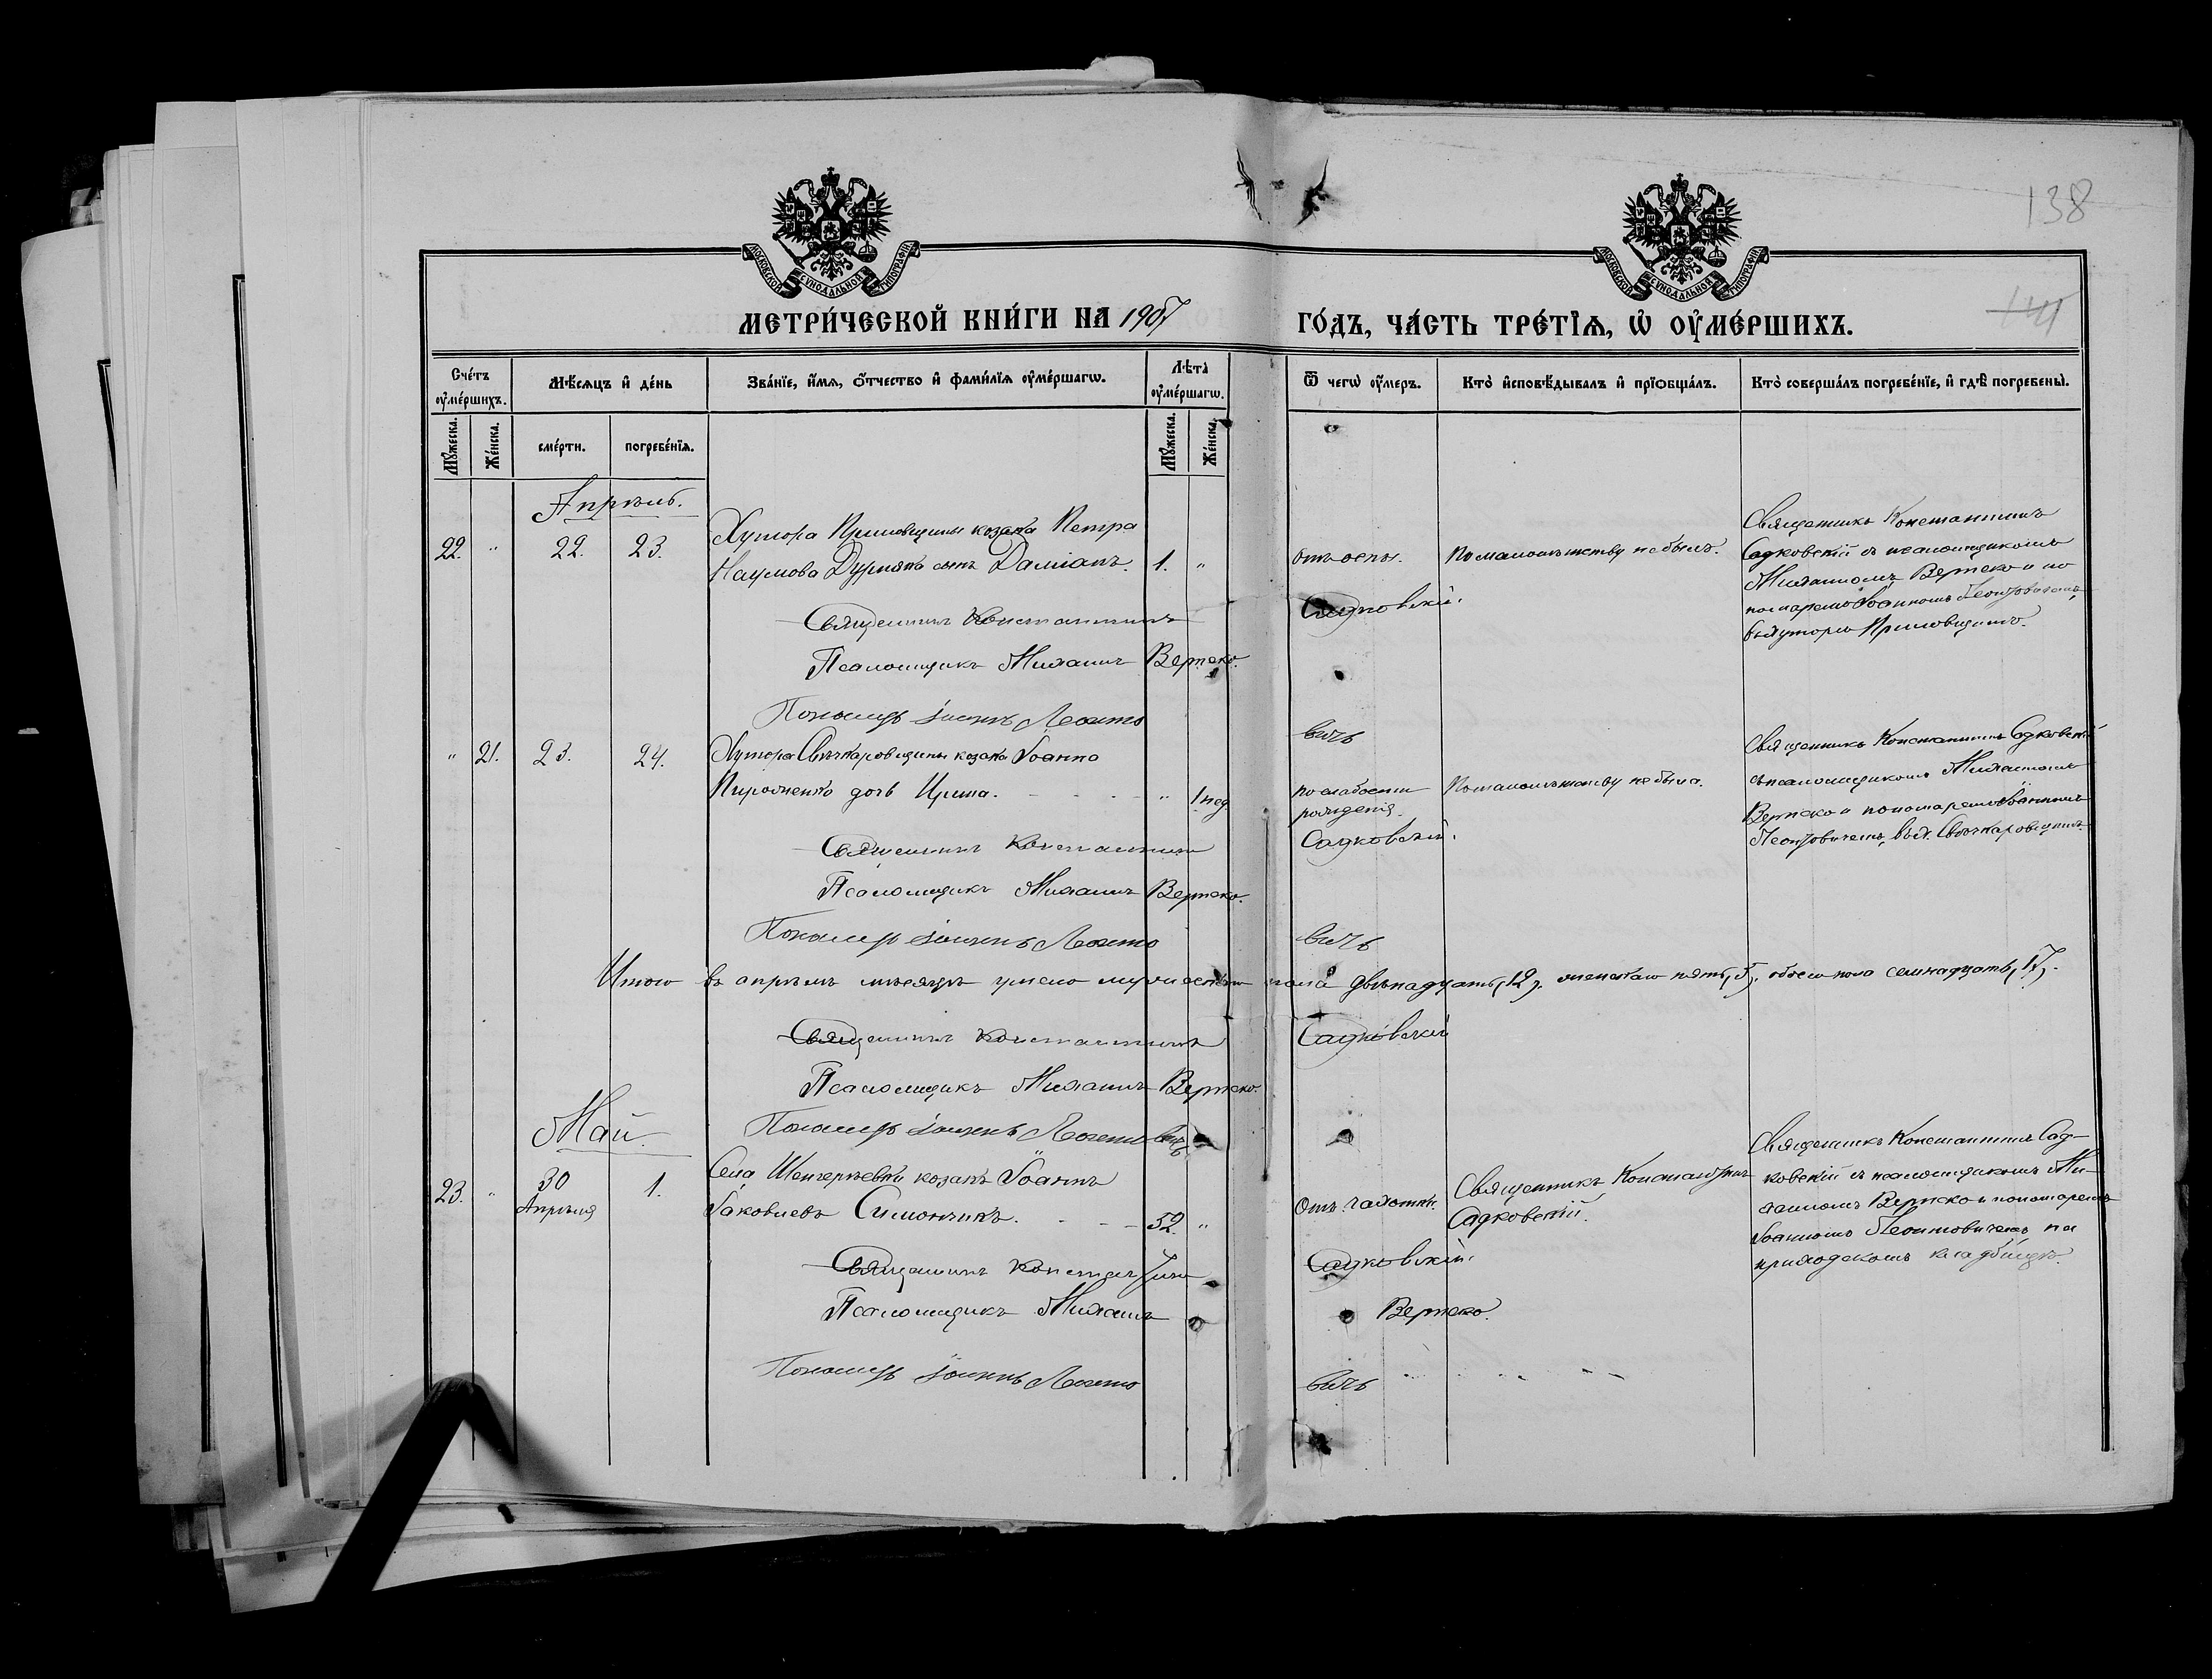 138
141
МОСКОВСКОЙ СѴНОДАЛЬНОЙ ТИПОГРАФІИ
МОСКОВСКОЙ СѴНОДАЛЬНОЙ ТИПОГРАФІИ
МЕТРИ́ЧЕСКОЙ КНИ́ГИ НА 1907
ГО́ДЪ, ЧА́СТЬ ТРЕ́ТІѦ, Ѽ ОУ҆МЕ́РШИХЪ.
Сче́тъ оу҆ме́ршихъ.
Мѣ́сѧцъ и҆ де́нь
Зва́нїе, и҆́мѧ, ѻ҆́тчество и҆ фами́лїѧ оу҆ме́ршагѡ.
Лѣ́та оу҆ме́ршагѡ.
Ѿ чегѡ̀ оу҆́меръ.
Кто̀ и҆сповѣ́дывалъ и҆ прїѡбща́лъ.
Кто̀ соверша́лъ погребе́нїе, и҆ гдѣ̀ погребены̀.
Мꙋ́жеска.
Же́нска.
сме́рти.
погребе́нїѧ.
Мꙋ́жеска.
Же́нска.
Апрѣль.
22. " 22. 23.
Хутора козака Петра
Наумова сынъ Даміанъ. 1. "
отъ оспы.
По малолѣтству не былъ.
Священникъ Константинъ
Садковскій съ псаломщикомъ
Михаиломъ Вертско и по
номаремъ Іоанномъ Леонтовичемъ,
въ хуторѣ
Священникъ Константинъ Садковскій.
Псаломщикъ Михаилъ Вертско.
Пономарь Іоаннъ Леонтовичъ
" 21. 23. 24.
Хутора козака Іоанна
дочь Ирина. " 1 нед
по слабости
рожденія.
По малолѣтству не была.
Священникъ Константинъ Садковскій
съ псаломщикомъ Михаиломъ
Вертско и пономаремъ Іоанномъ
Леонтовичемъ, въ х.
Священникъ Константинъ Садковскій.
Псаломщикъ Михаилъ Вертско.
Пономарь Іоаннъ Леонтовичъ
Итого въ апрѣлѣ мѣсяцѣ умерло мужескаго пола двѣнадцать (12), женскаго пять (5), обоего пола семнадцать (17).
Священникъ Константинъ Садковскій
Псаломщикъ Михаилъ Вертско.
Пономарь Іоаннъ Леонтовичъ
Май.
23. " 30 Апрѣля 1.
Села козакъ Іоаннъ
Іаковлевъ Симончикъ. 52. "
Отъ чахотки.
Священникъ Константинъ
Садковскій.
Священникъ Константинъ Сад-
ковскій съ псаломщикомъ Ми-
хаиломъ Вертско и пономаремъ
Іоанномъ Леонтовичемъ на
приходскомъ кладбищѣ.
Священникъ Константинъ Садковскій.
Псаломщикъ Михаилъ Вертско.
Пономарь Іоаннъ Леонтовичъ